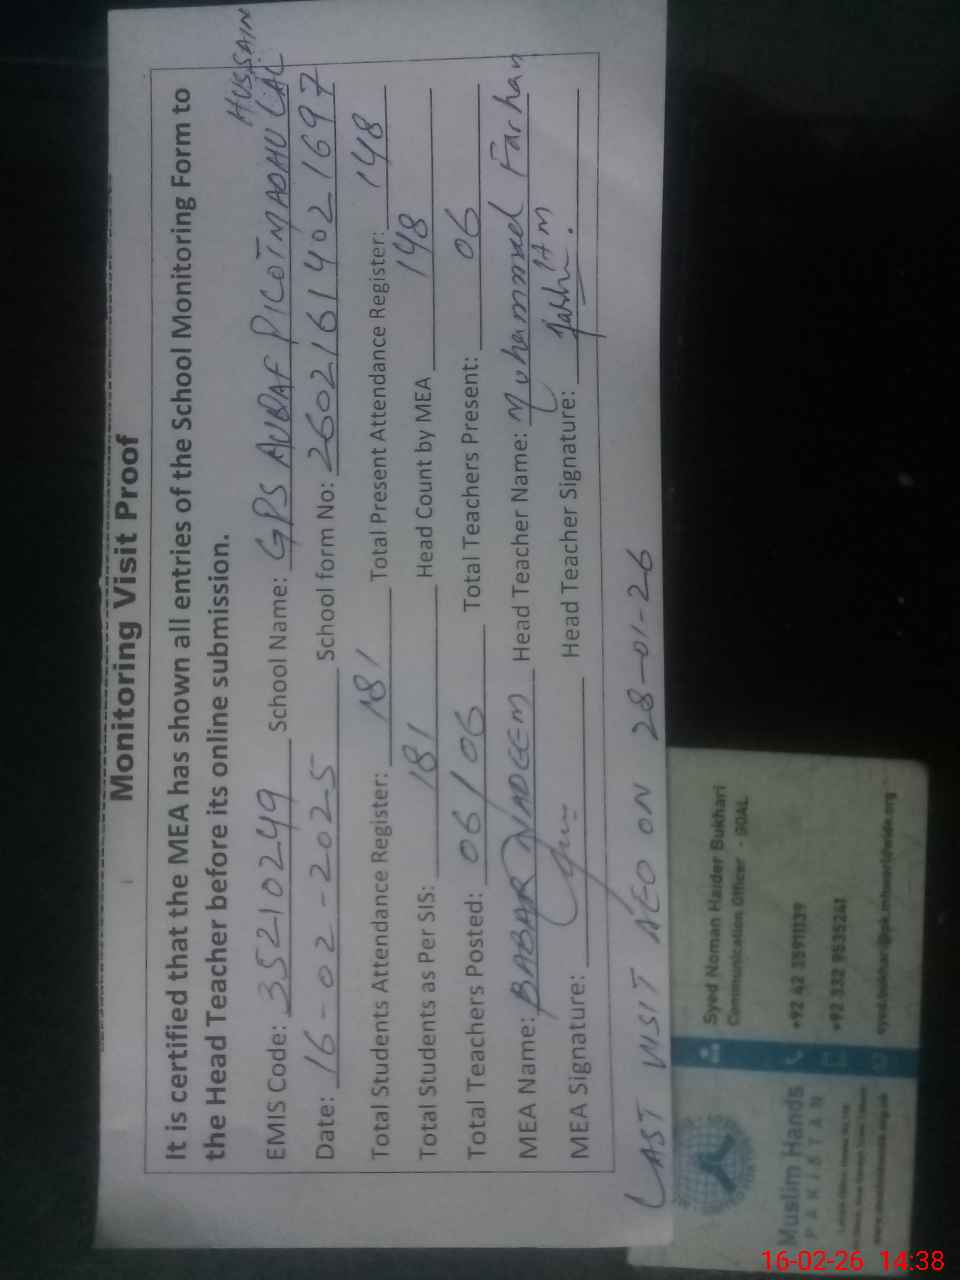 Monitoring Visit Proof
It is certified that the MEA has shown all entries of the School Monitoring Form to
the Head Teacher before its online submission.
EMIS Code: 35210249 School Name: GPS AUBAF PICOTMADAU LAL HUSSAIN
Date: 16-02-2025 School form No: 26021614021697
Total Students Attendance Register: 181 Total Present Attendance Register: 148
Total Students as Per SIS: 181 Head Count by MEA 148
Total Teachers Posted: 06/06 Total Teachers Present: 06
MEA Name: BABAR NADEEM Head Teacher Name: Muhammad Farhan
MEA Signature: Head Teacher Signature:
LAST VISIT AEO ON 28-01-26
Muslim Hands
PAKISTAN
Syed Noman Haider Bukhari
Communication Officer - 9OAL
+92 42 35911139
+92 332 9535261
16-02-26 14:38